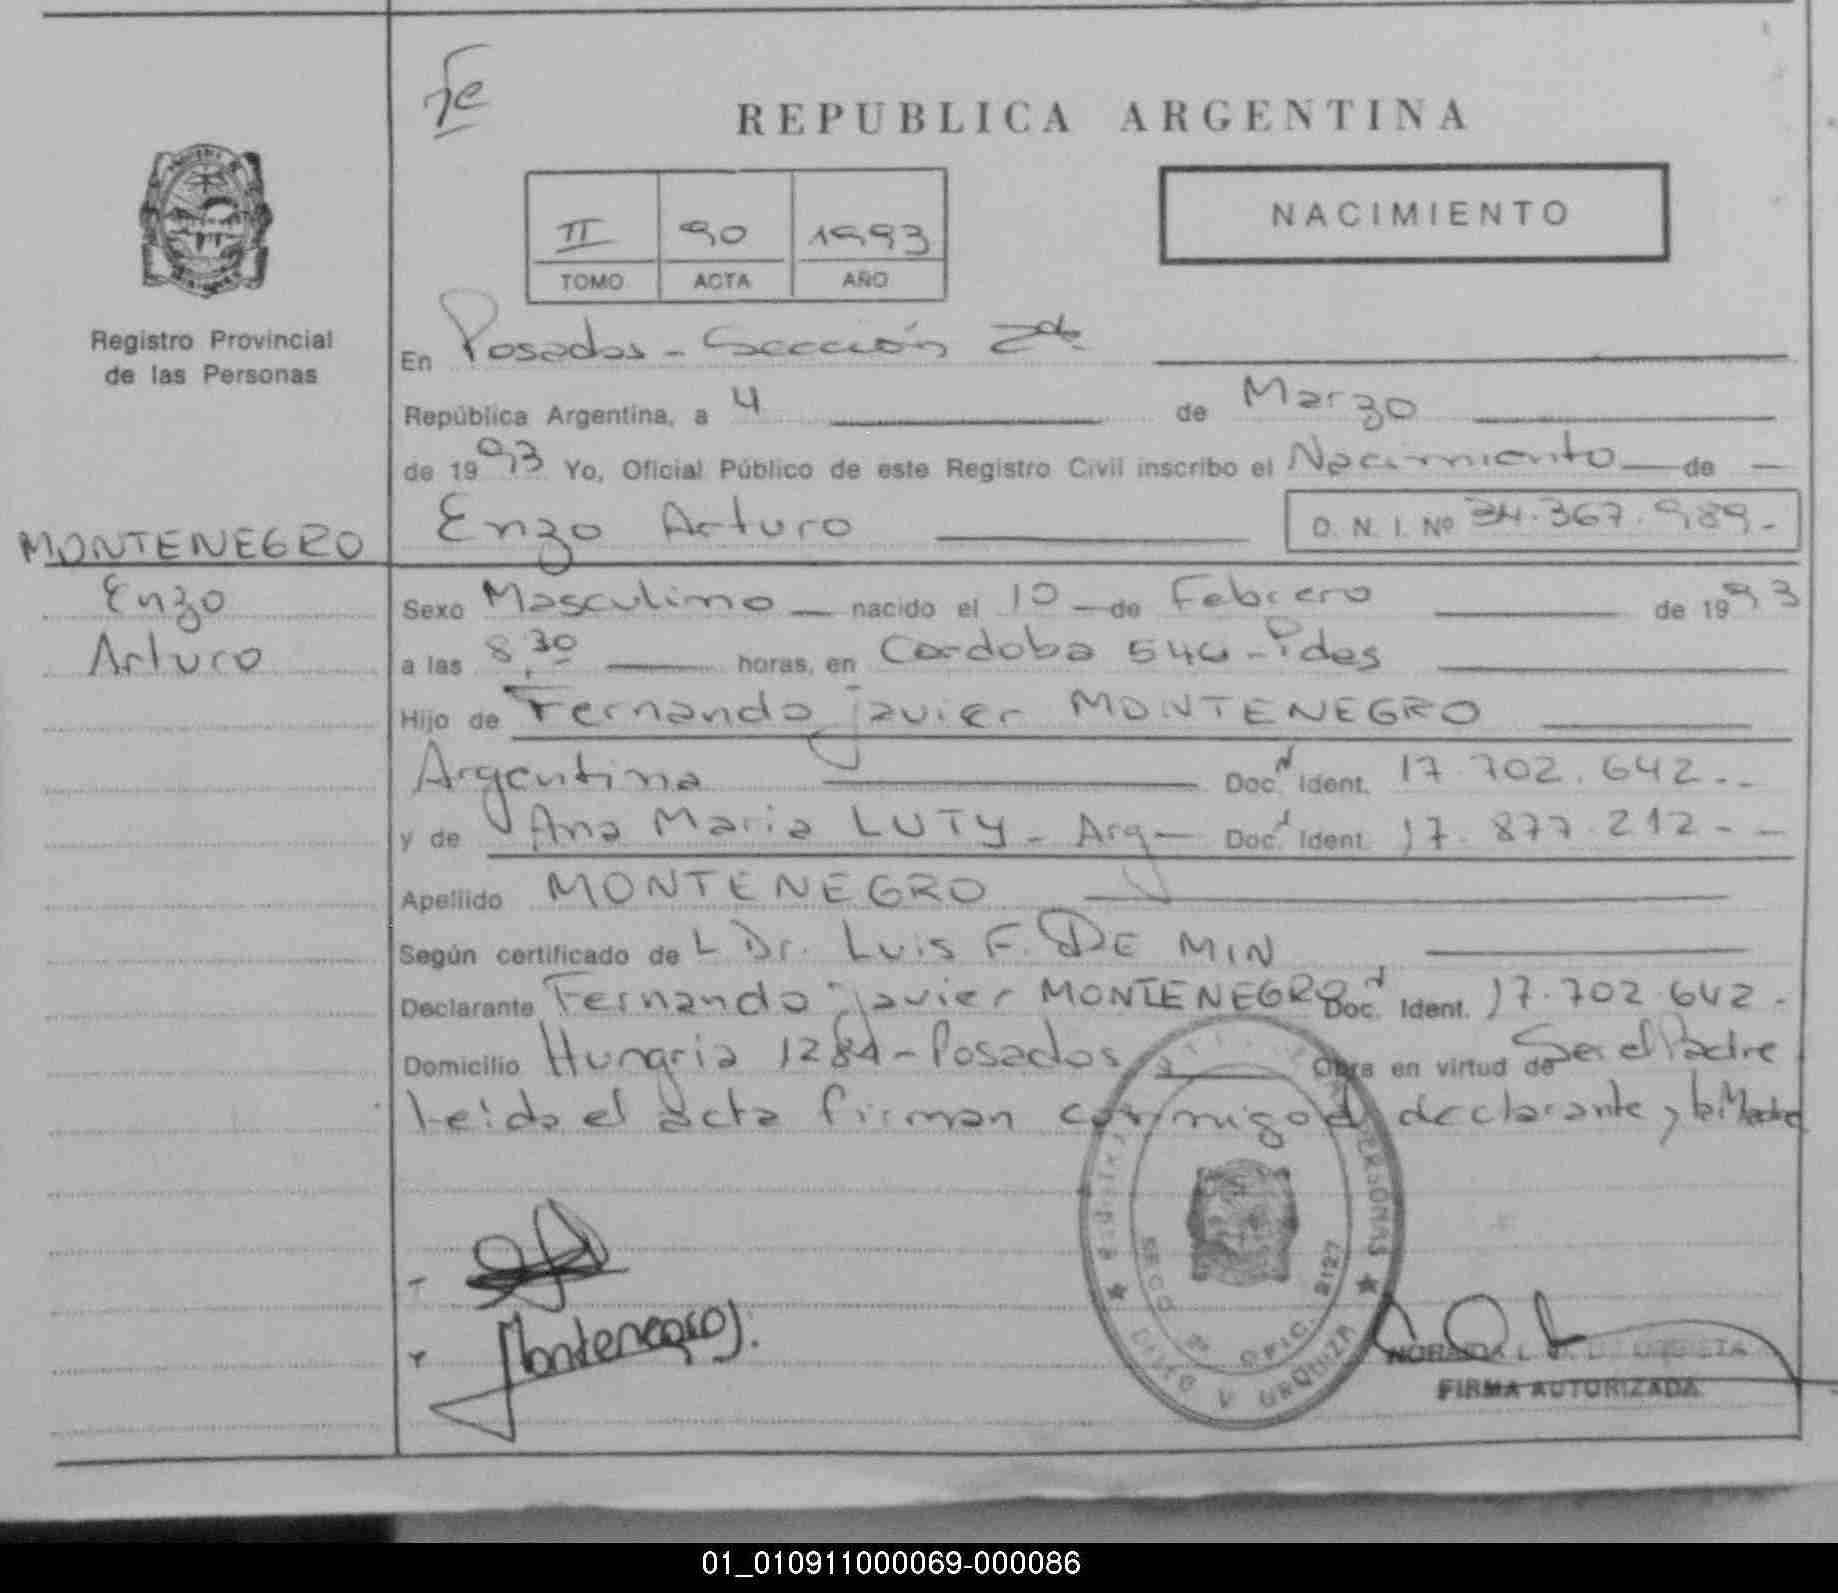 Fe
REPUBLICA ARGENTINA
II 90 1993
TOMO ACTA AÑO
NACIMIENTO
Registro Provincial
de las Personas
En Posadas - Sección 2da.
República Argentina, a 4 de Marzo
de 1993 Yo, Oficial Público de este Registro Civil inscribo el Nacimiento de
MONTENEGRO Enzo Arturo D. N. I. Nº 34.367.989.-
Enzo
Arturo
Sexo Masculino nacido el 10 de Febrero de 1993
a las 8,30 horas, en Cordoba 546 - Pdas
Hijo de Fernando Javier MONTENEGRO
Argentina Doc. N Ident. 17.702.642.-
y de Ana Maria LUTY - Arg - Doc. Ident. 17.877.212.-
Apellido MONTENEGRO
Según certificado de L Dr. Luis F. DE MIN
Declarante Fernando Javier MONTENEGRO Doc. Ident. 17.702.642.
Domicilio Hungria 1284 - Posadas Obra en virtud de Ser el Padre
Leida el acta firman conmigo el declarante y la Madre
Montenegro J.
PERSONAS
SECC 2ª OFIC. 2127
LIYO V URQUIZA
FIRMA AUTORIZADA
01_010911000069-000086